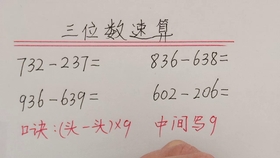 三位数速算
732-237= 836-638=
936-639= 602-206=
口诀:(头-头)×9 中间写9